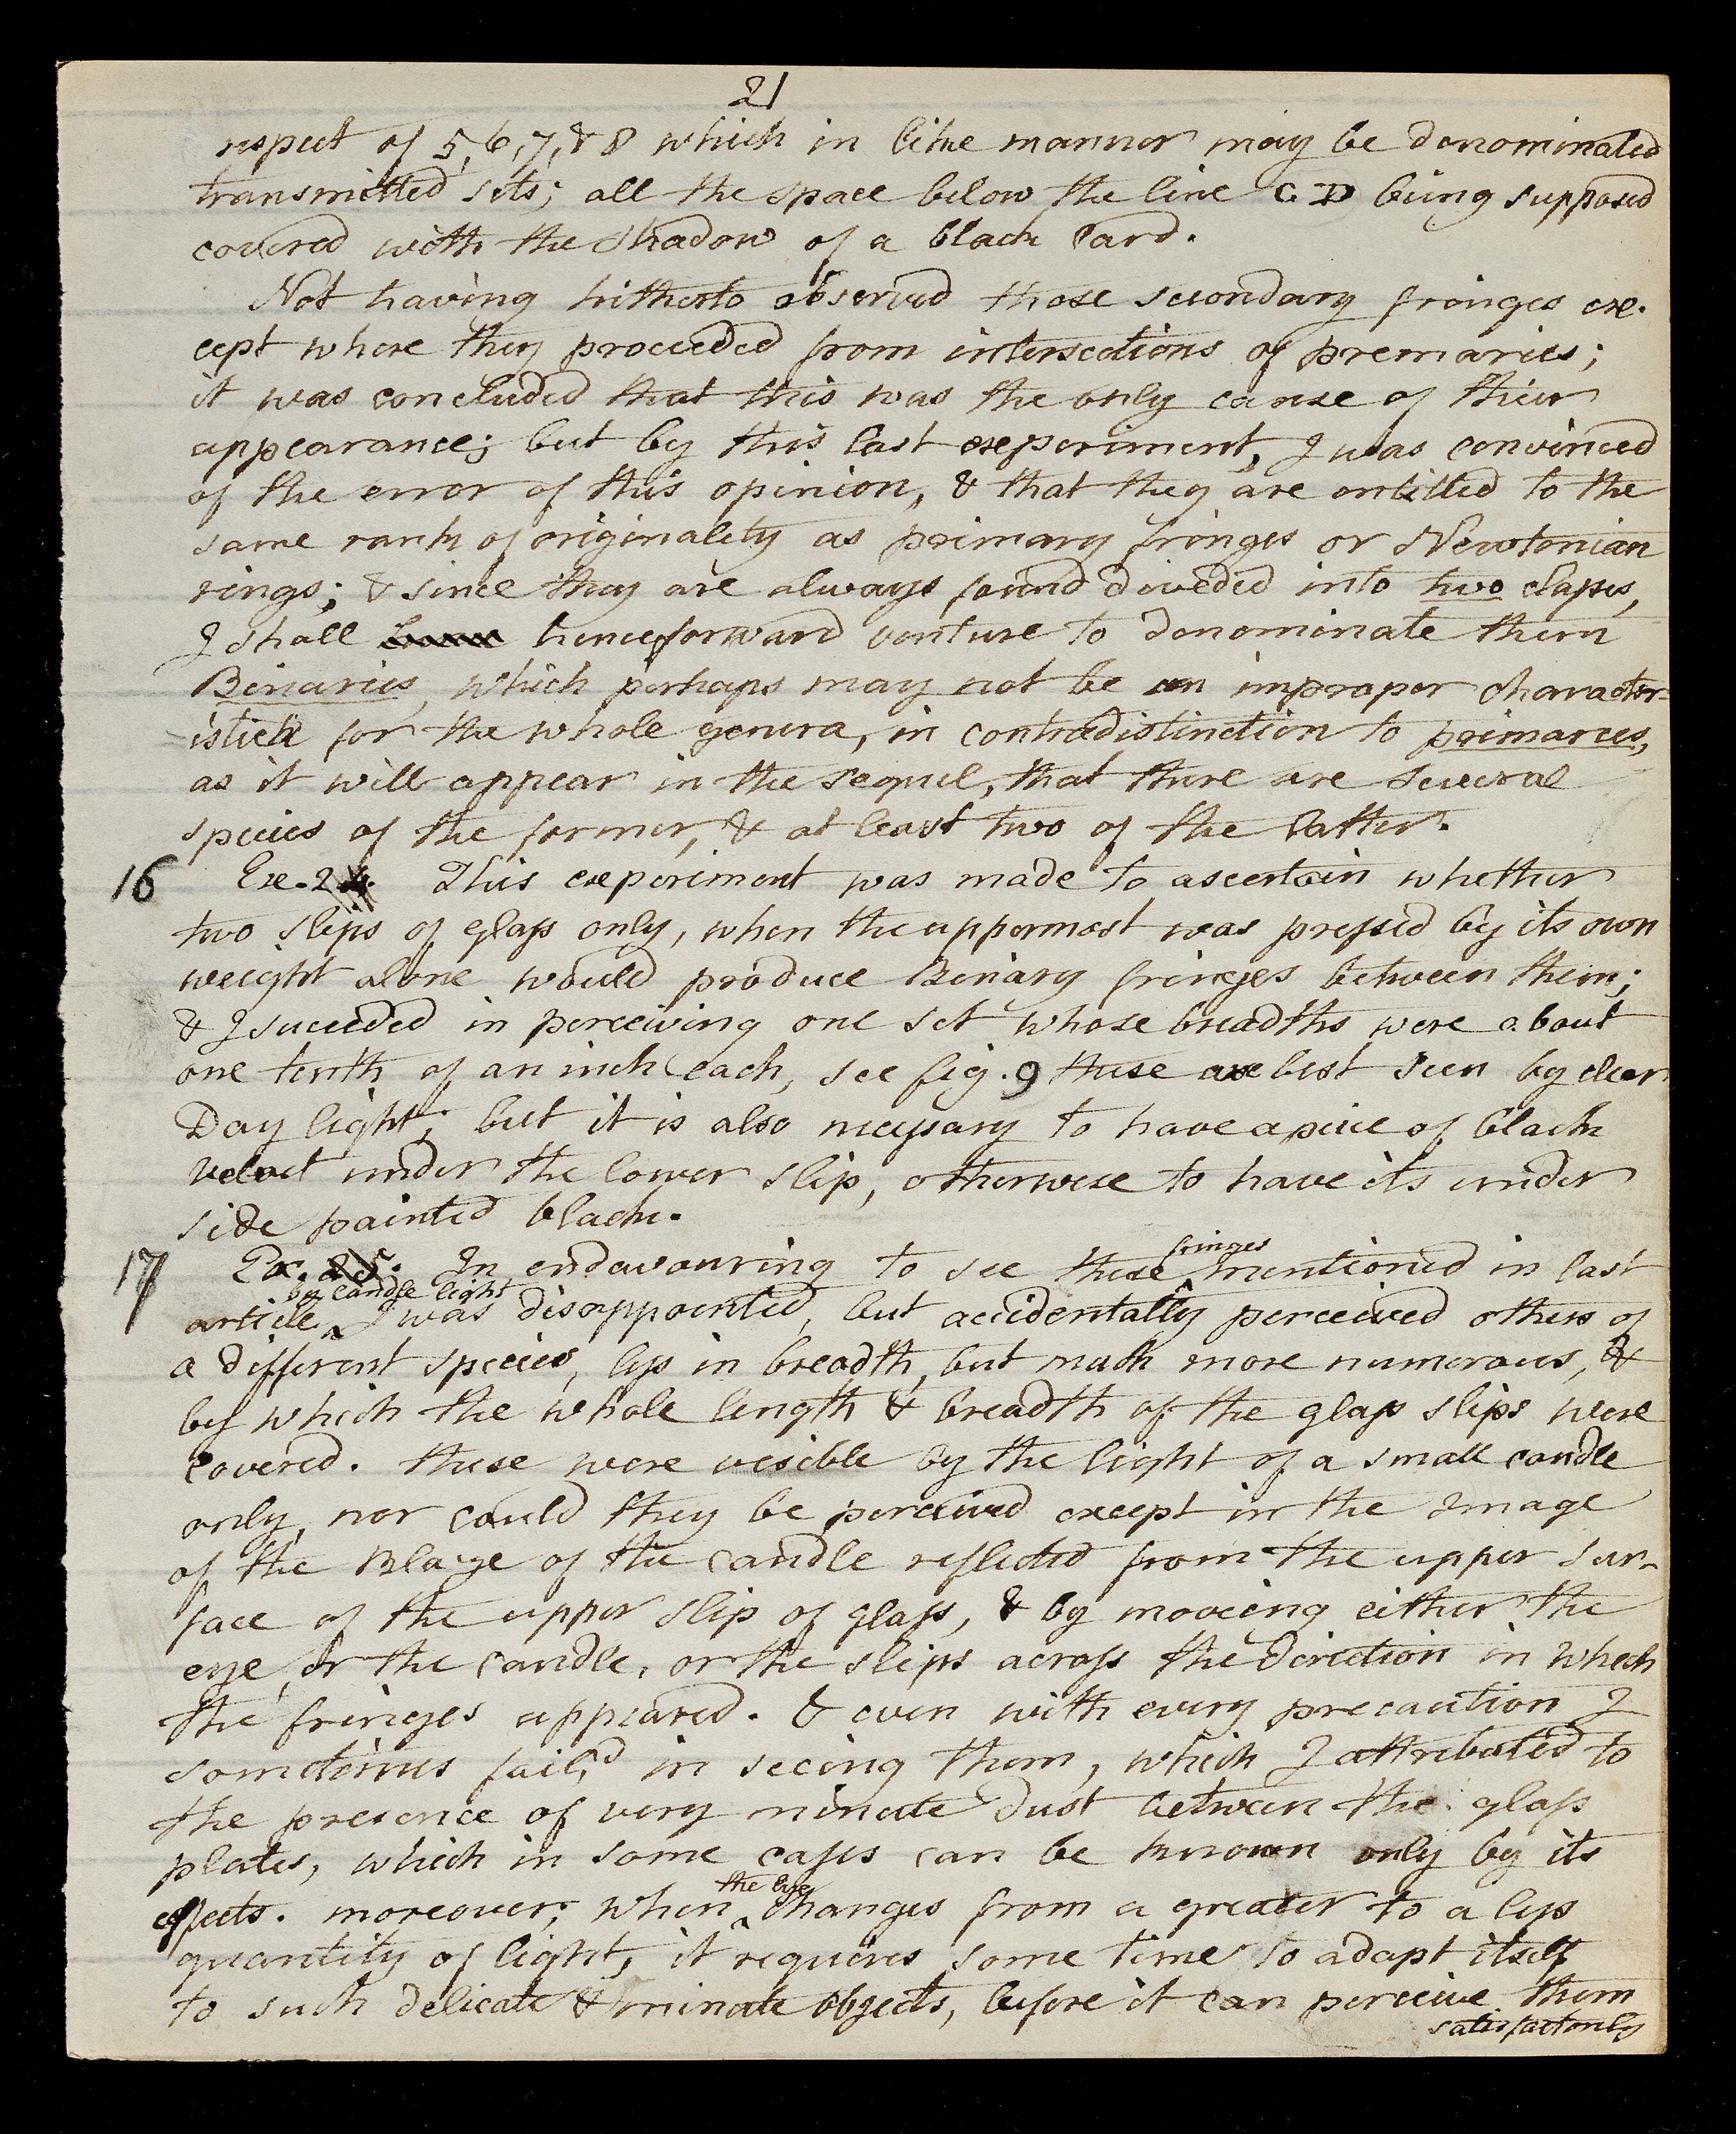 21
respect of 5, 6, 7, & 8 which in like manner may be denominated
transmitted sets; all the space below the line C D being supposed
covered with the shadow of a black Card.
Not having hitherto observed those secondary fringes ex-
cept where they proceeded from intersections of premaries;
it was concluded that this was the only cause of their
appearance; but by this last experiment, I was convinced
of the error of this opinion, & that they are entitled to the
same rank of originality as primary fringes or Newtonian
rings; & since they are always found diveded into two classes,
I shall henceforward venture to denominate them
Binaries, which perhaps may not be an improper character-
istick for the whole genera, in contradistinction to primaries,
as it will appear in the sequel, that there are several
species of the former, & at least two of the latter.
16 Ex. 24. This experiment was made to ascertain whether
two slips of glass only, when the uppermost was pressed by its own
weight alone would produce Binary fringes between them;
& I succeded in perceiving one set whose breadths were about
one tenth of an inch each, see fig. 9 these are best seen by clear
Day light; but it is also necessary to have a piece of black
velvet under the lower slip, otherwise to have its under
side painted black.
17 Ex. 25. In endeavouring to see these fringes mentioned in last
article by candle light I was disappointed, but accidentally perceived others of
a different species, less in breadth, but much more numerous, &
by which the whole length & breadth of the glass slips were
covered. these were visible by the light of a small candle
only, nor could they be perceived except in the Image
of the Blaze of the candle reflected from the upper sur-
face of the upper slip of glass, & by moveing either the
eye, or the candle, or the slips across the Direction in which
the fringes appeared. & even with every precaution I
sometimes fail,d in seeing them, which I attributed to
the presence of very minute dust between the glass
plates, which in some cases can be known only by its
effects. moreover, when the eye changes from a greater to a less
quantity of light, it requires some time to adapt itself
to such delicate & minute objects, before it can perceive them
satisfactorily